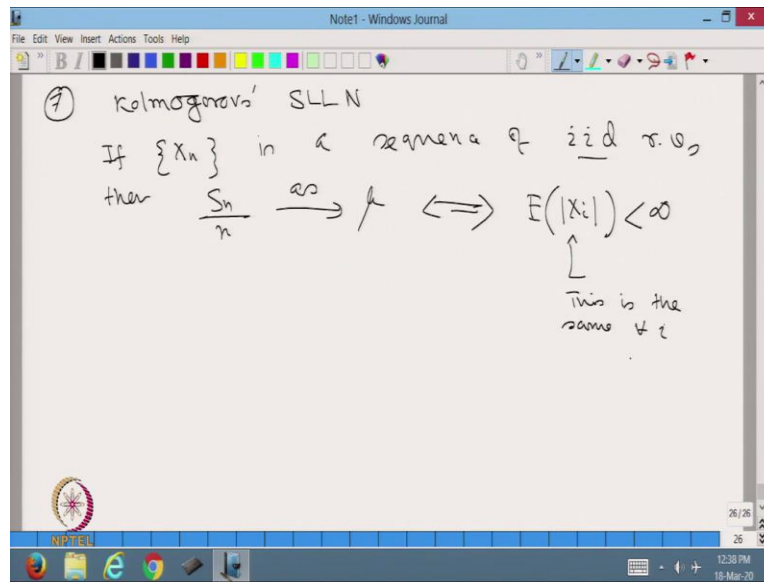 Note1 - Windows Journal
File Edit View Insert Actions Tools Help
B I
7 Kolmogorovs' SLLN
If {Xn} is a sequence of iid r.v.s
then Sn/n as→ μ ⟺ E(|Xi|) < ∞
This is the
same ∀ i
NPTEL
26/26
26
12:38 PM
18-Mar-20